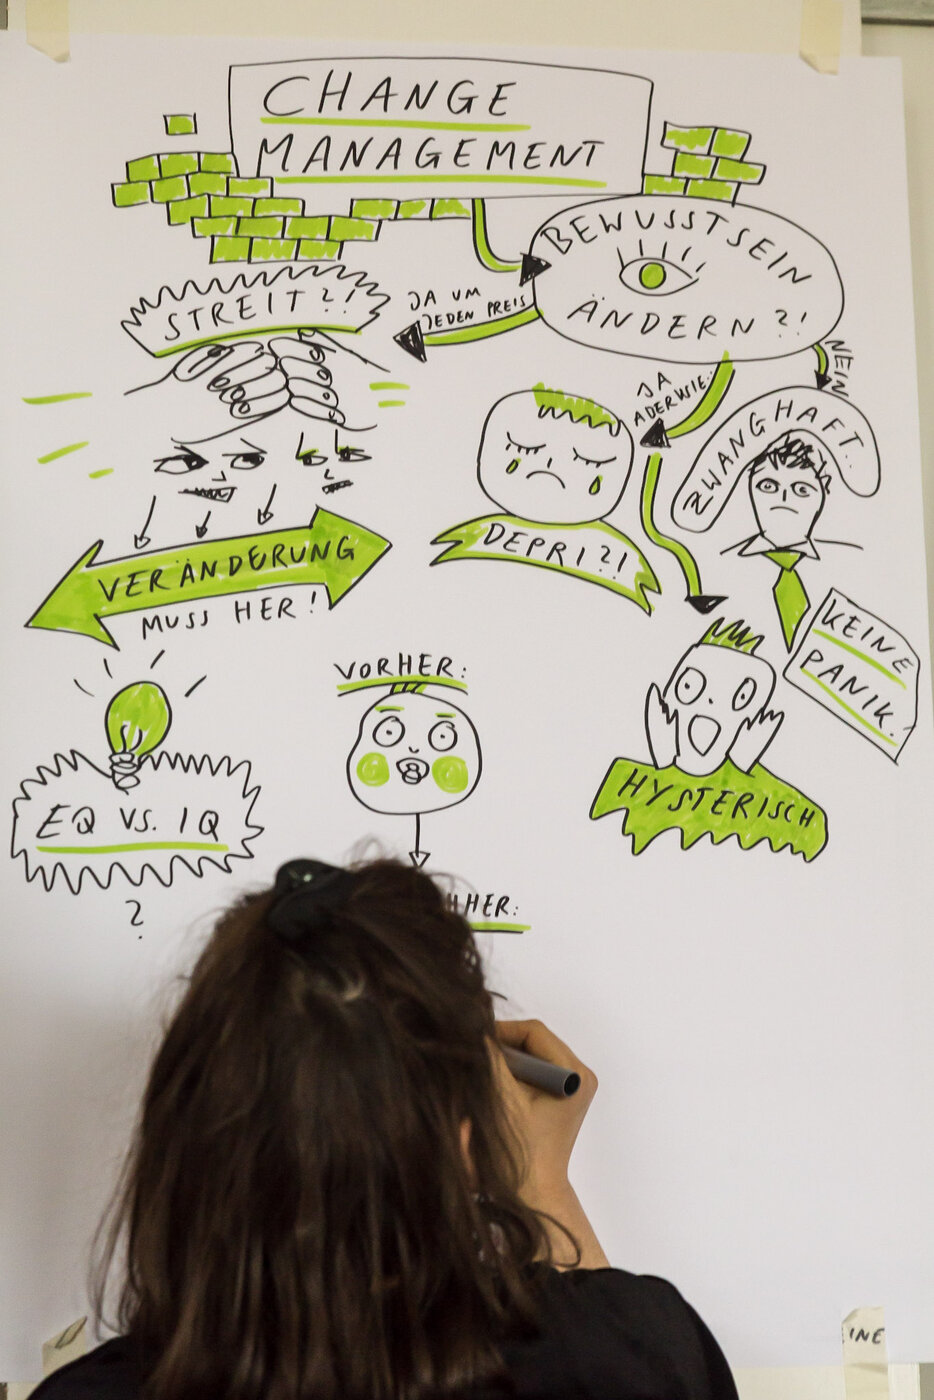 CHANGE
MANAGEMENT
BEWUSSTSEIN
ÄNDERN?!
JA UM
JEDEN PREIS
STREIT?!
NEIN
JA
ABER WIE..
ZWANGHAFT..
DEPRI?!
VERÄNDERUNG
MUSS HER!
KEINE
PANIK.
VORHER:
HYSTERISCH
EQ VS. IQ
?
HHER:
INE